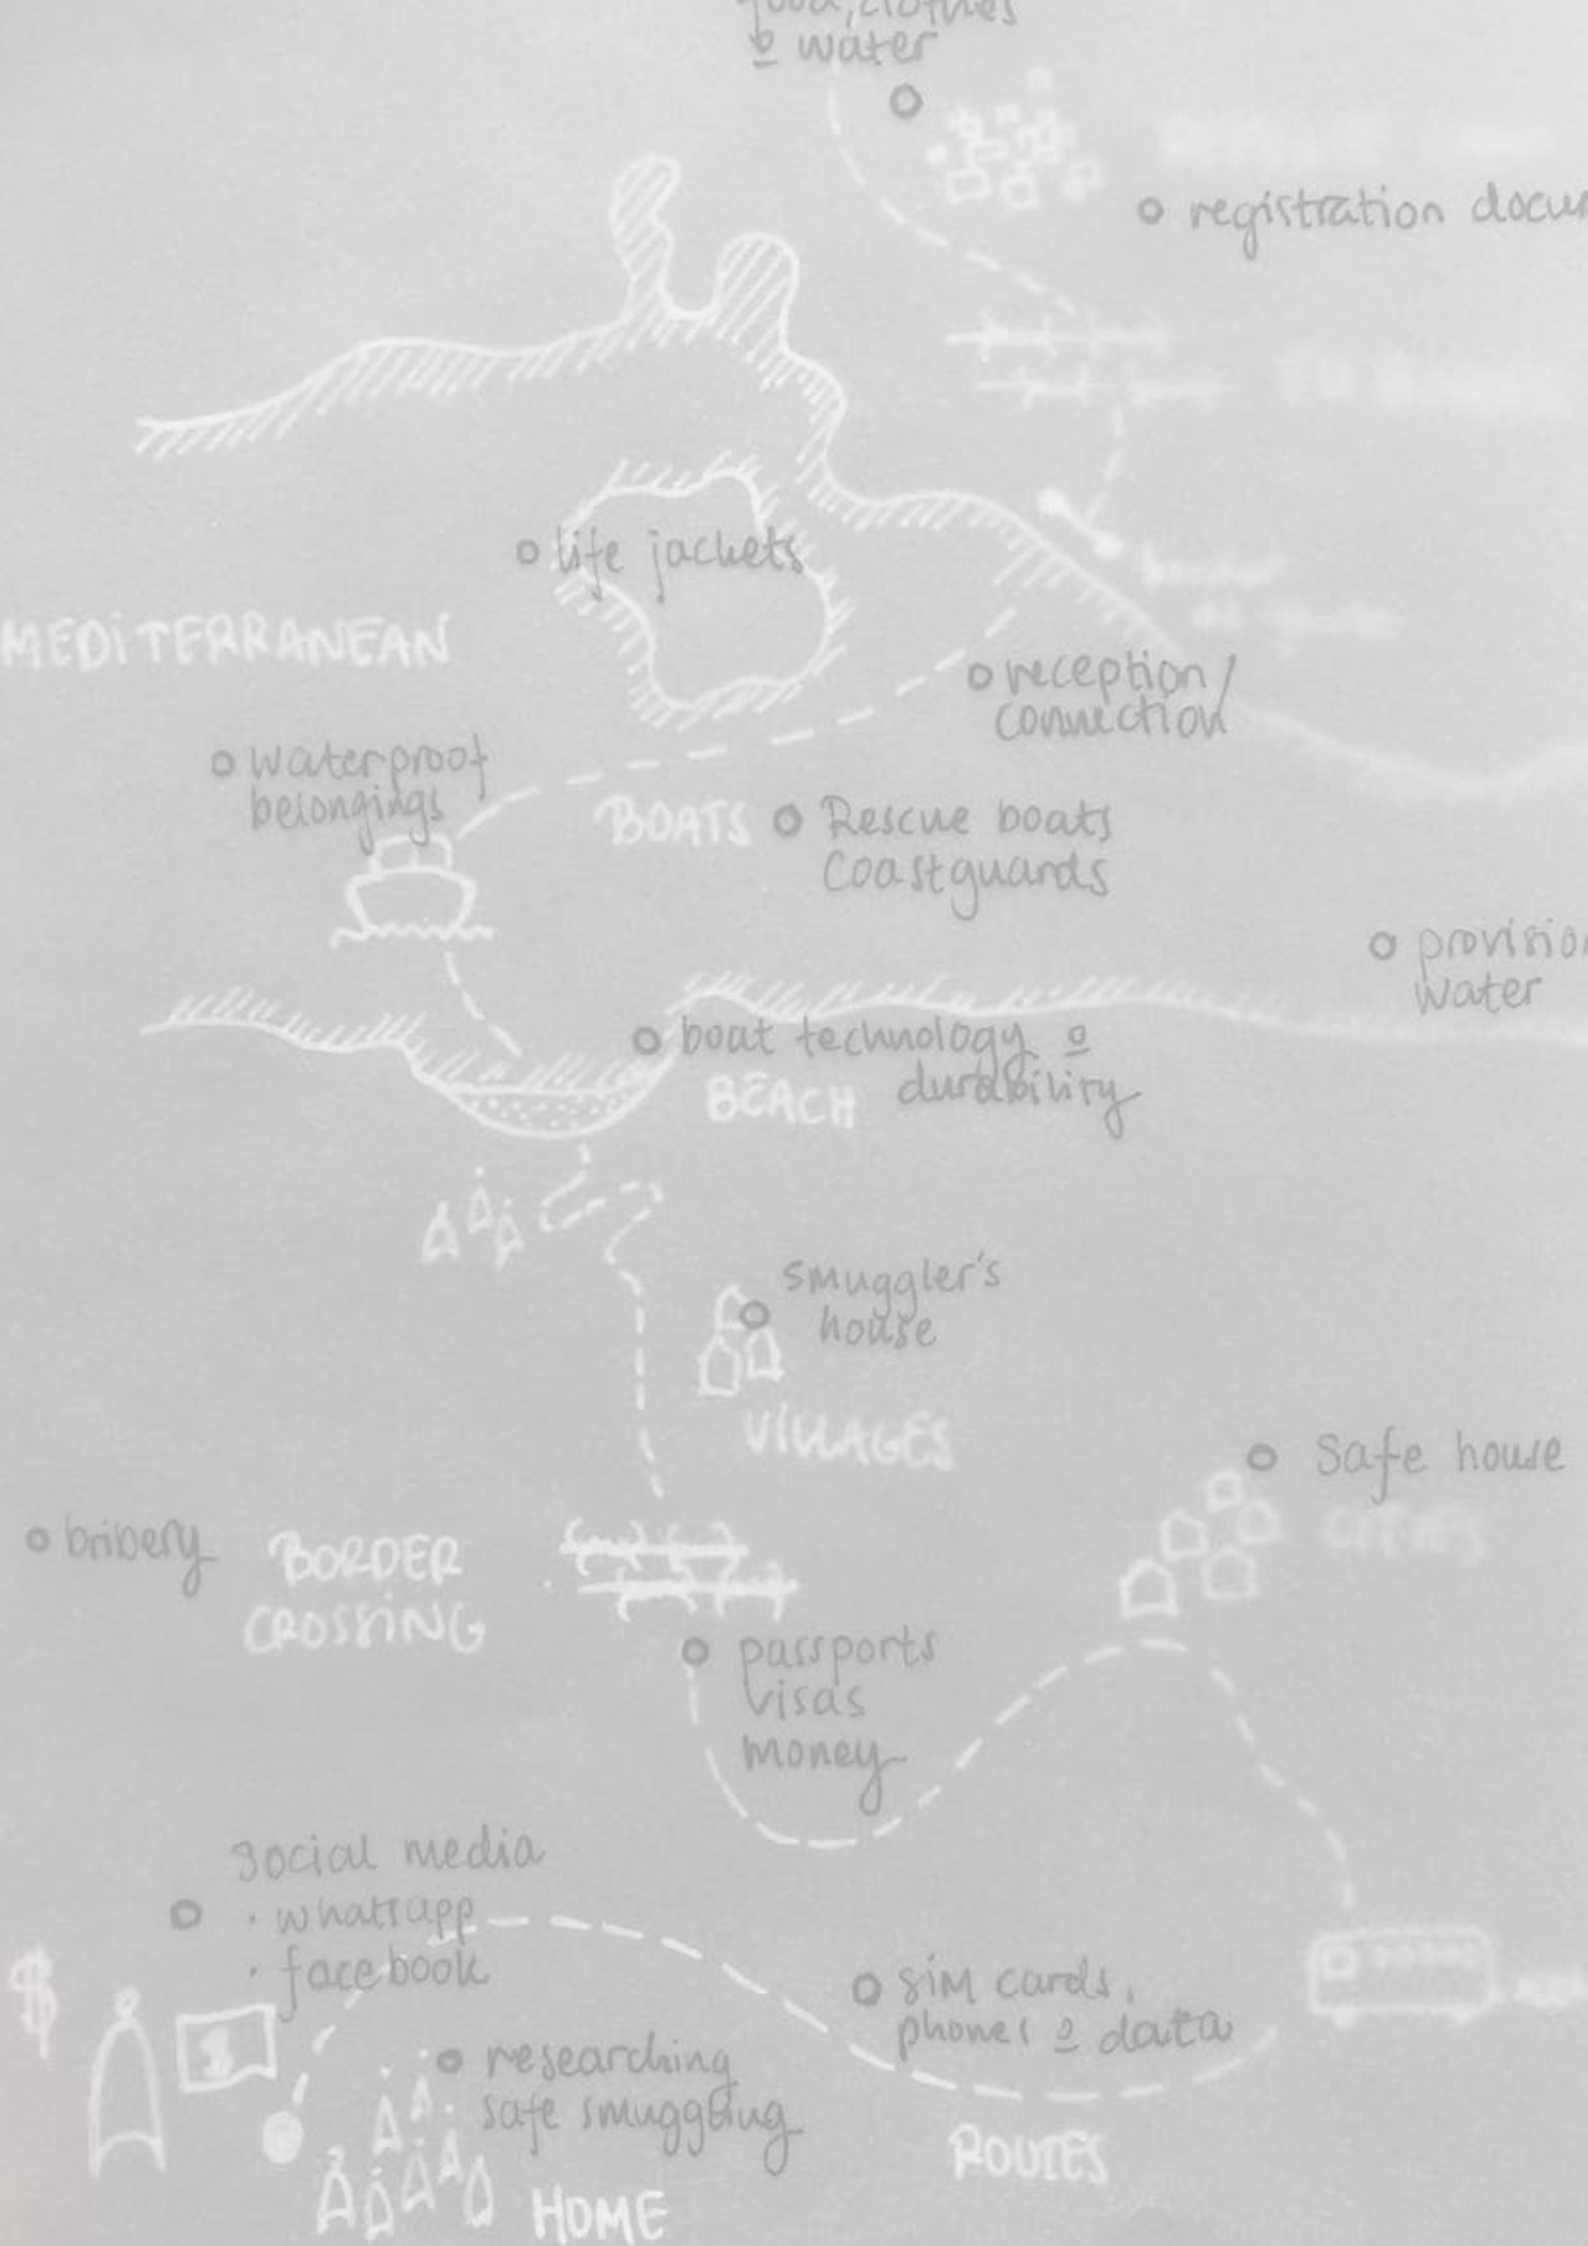 food, clothes
& water
registration docu
life jackets
MEDITERRANEAN
reception/
connection
waterproof
belongings
BOATS
Rescue boats
Coastguards
provision
water
boat technology &
durability
BEACH
smuggler's
house
VILLAGES
Safe house
CITIES
bribery
BORDER
CROSSING
passports
visas
money
social media
· whatsapp
· facebook
$
$
sim cards,
phones & data
researching
safe smuggling
ROUTES
HOME